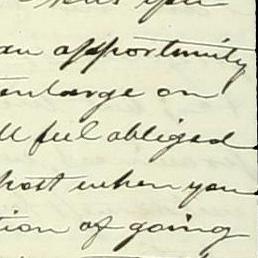 you
an opportunity
enlarge on
ll feel obliged
host when you
tion of going